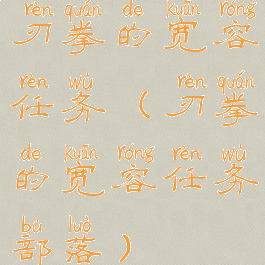 rèn quán de kuān róng
刃拳的宽容
rèn wù rèn quán
任务（刃拳
de kuān róng rèn wù
的宽容任务
bù luò
部落）